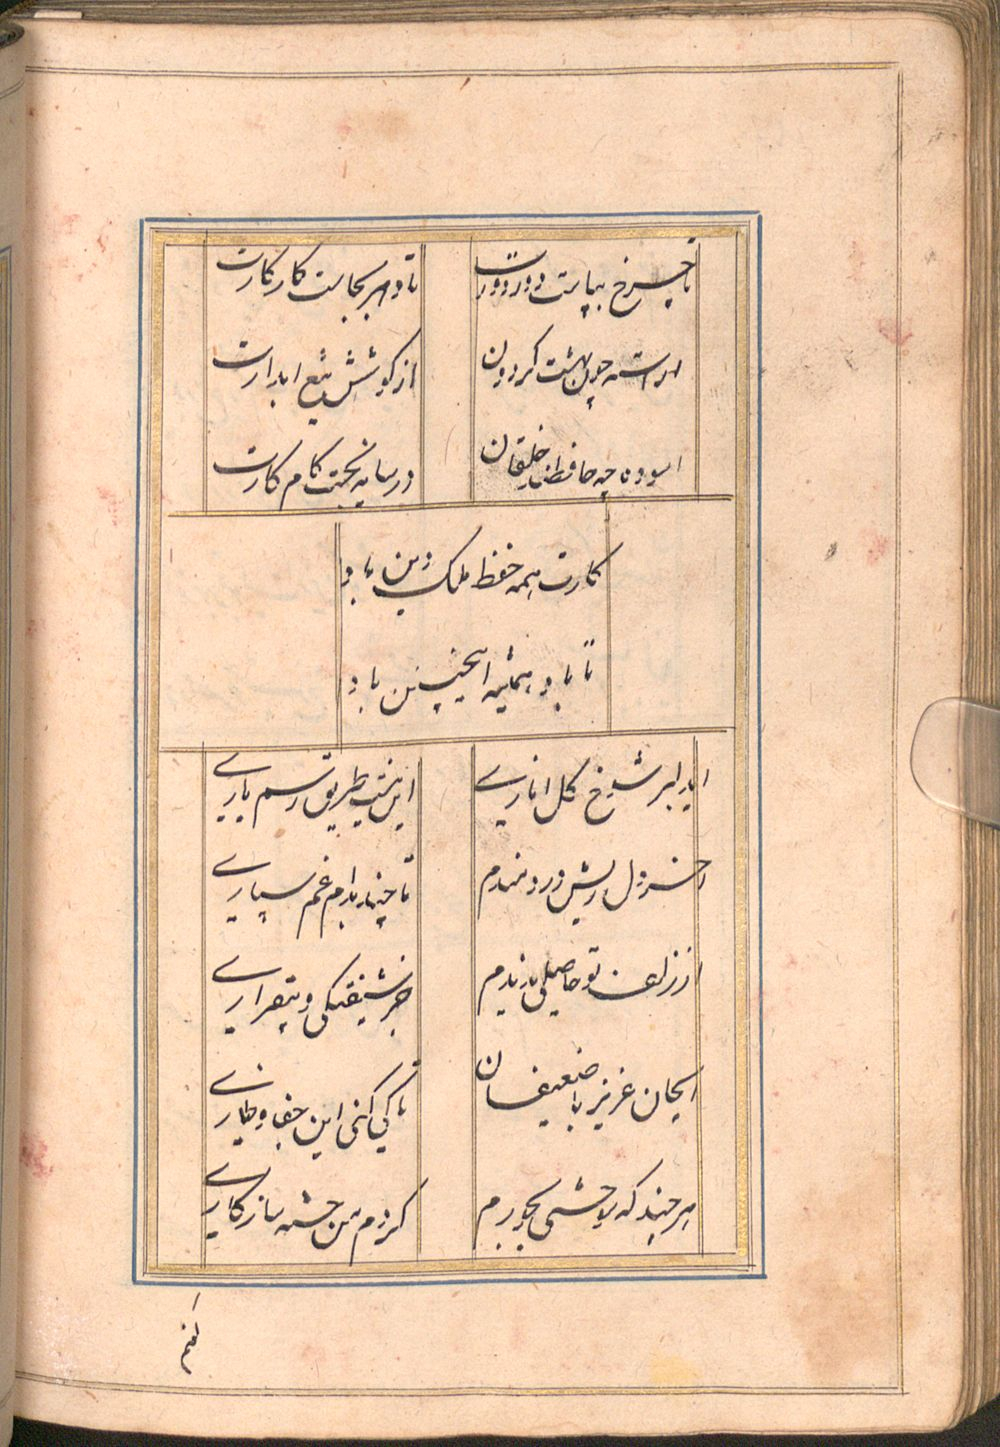 تا چرخ بپاست دور دورت
تا دهر بجاست کار کارت
اراسته چون بهشت کردون
از کوشش تیغ ابدارت
اسوده چه حافظ خلیقان
در سایه بخت کام کارت
کارت همه حفظ ملک و دین باد
تا باد همیشه اینچنین باد
ای دلبر شوخ کل اناری
این نیست طریق رسم یاری
اخر دل ریش دردمندم
تا چند بدام غم سپاری
از زلف تو حاصلی ندیدم
جز شیفتکی و بیقراری
ایجان عزیز با ضعیفان
تا کی کنی این جفا و خاری
هر چند که بوحشمی بجورم
کردم من خسته سازکاری